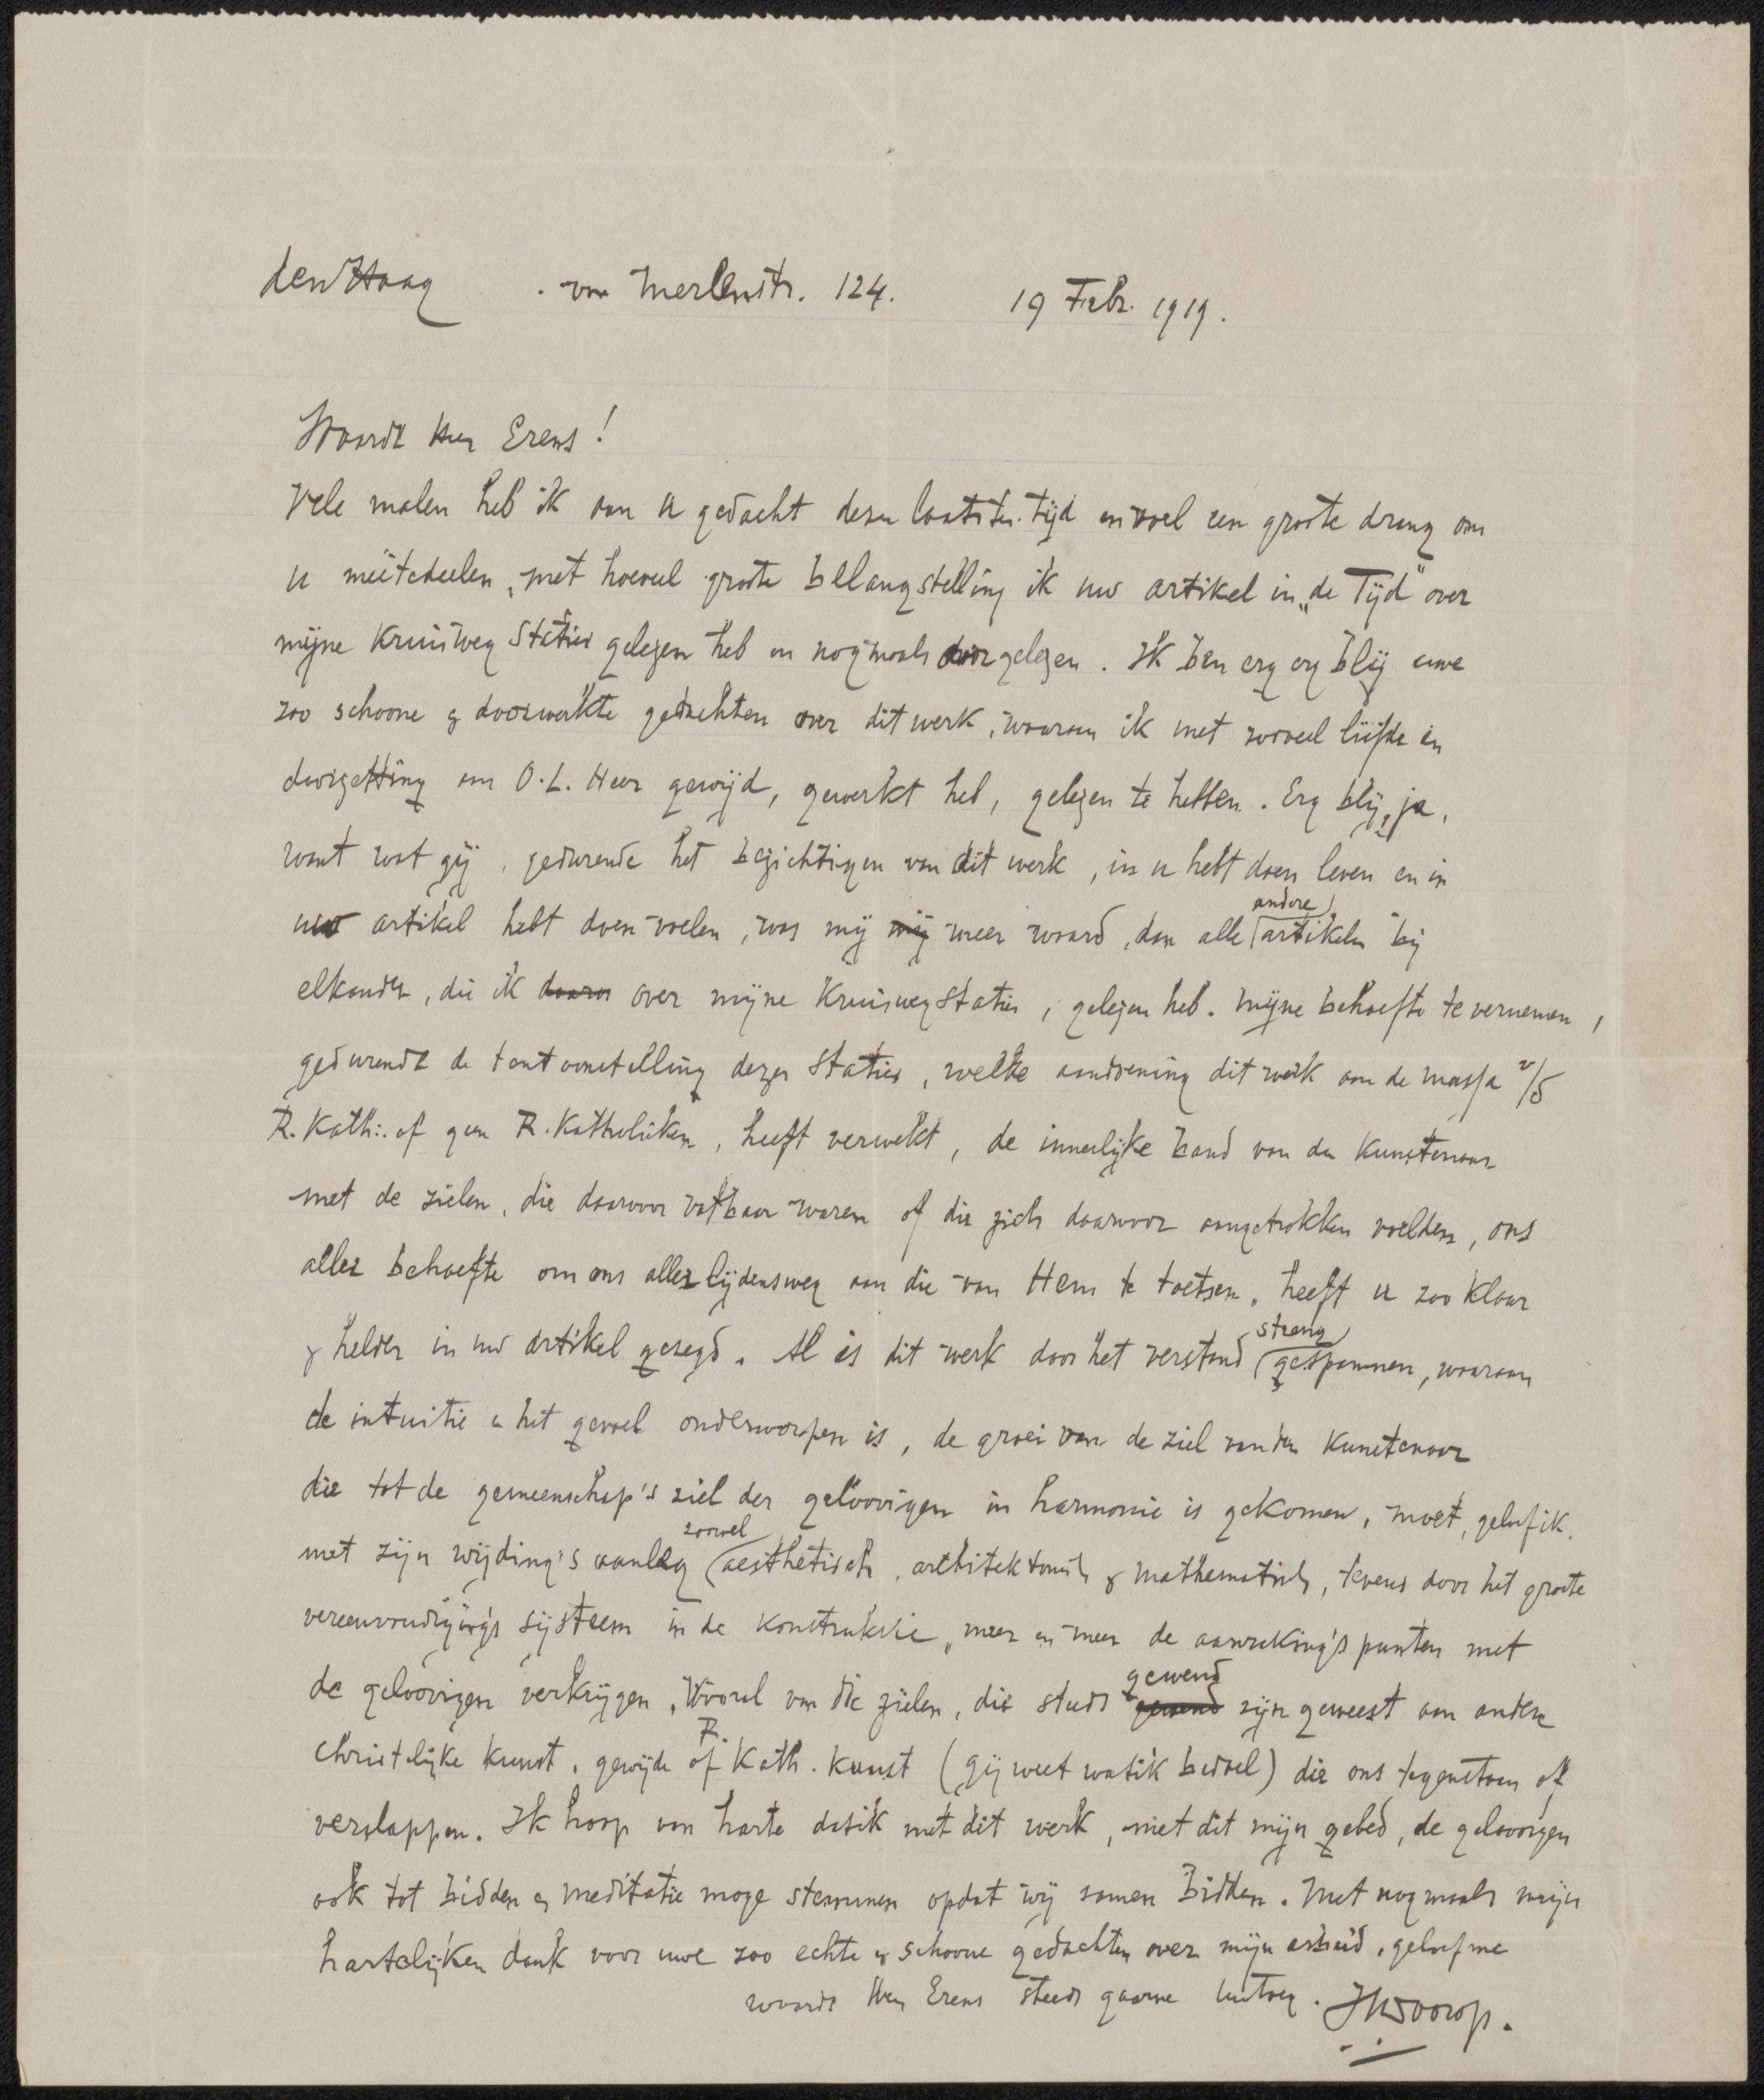 den Haag . van Merlenstr. 124. 19 Febr. 1919.
Waarde Heer Erens!
Vele malen heb ik aan u gedacht dezen laatsten tijd en voel een groote drang om
u meetedeelen, met hoeveel groote belangstelling ik uw artikel in „de Tijd" over
mijne Kruisweg Staties gelezen heb en nogmaals doorgelezen. Ik ben erg erg blij uwe
zoo schoone & doorwerkte gedachten over dit werk, waaraan ik met zooveel liefde en
toewijding aan O.L. Heer gewijd, gewerkt heb, gelezen te hebben. Erg blij, ja,
want wat gij, gedurende het bezichtigen van dit werk, in u hebt doen leven en in
uw artikel hebt doen voelen, was mij mij meer waard, dan alle andere artikelen bij
elkander, die ik daarov over mijne Kruisweg Staties, gelezen heb. Mijne behoefte te vernemen,
gedurende de tentoonstelling dezer Staties, welke aandoening dit werk aan de massa v/d
R. Kath:. of geen R. Katholieken, heeft verwekt, de innerlijke band van den Kunstenaar
met de zielen, die daarvoor vatbaar waren of die zich daarvoor aangetrokken voelden, ons
aller behoefte om ons aller lijdensweg aan die van Hem te toetsen, heeft u zoo klaar
& helder in uw artikel gezegd. Al is dit werk door het verstand streng gespannen, waaraan
de intuitie & het gevoel onderworpen is, de groei van de ziel van den Kunstenaar
die tot de gemeenschap's ziel der geloovigen in harmonie is gekomen, moet, geloof ik,
met zijn wijding's aanleg zoowel aesthetisch, architektonisch & mathematisch, tevens door het groote
vereenvoudiging's systeem in de konstruksie, meer en meer de aanraking's punten met
de geloovigen verkrijgen. Vooral van die zielen, die steeds gewend gewend zijn geweest aan andere
Christelijke kunst, gewijde of R. Kath. kunst (gij weet wat ik bedoel) die ons tegenstaan of
verslappen. Ik hoop van harte dat ik met dit werk, met dit mijn gebed, de geloovigen
ook tot bidden & meditatie moge stemmen opdat wij samen bidden. Met nogmaals mijn
hartelijken dank voor uwe zoo echte & schoone gedachten over mijn arbeid, geloof me
waarde Heer Erens steeds gaarne hoogach. JThToorop.